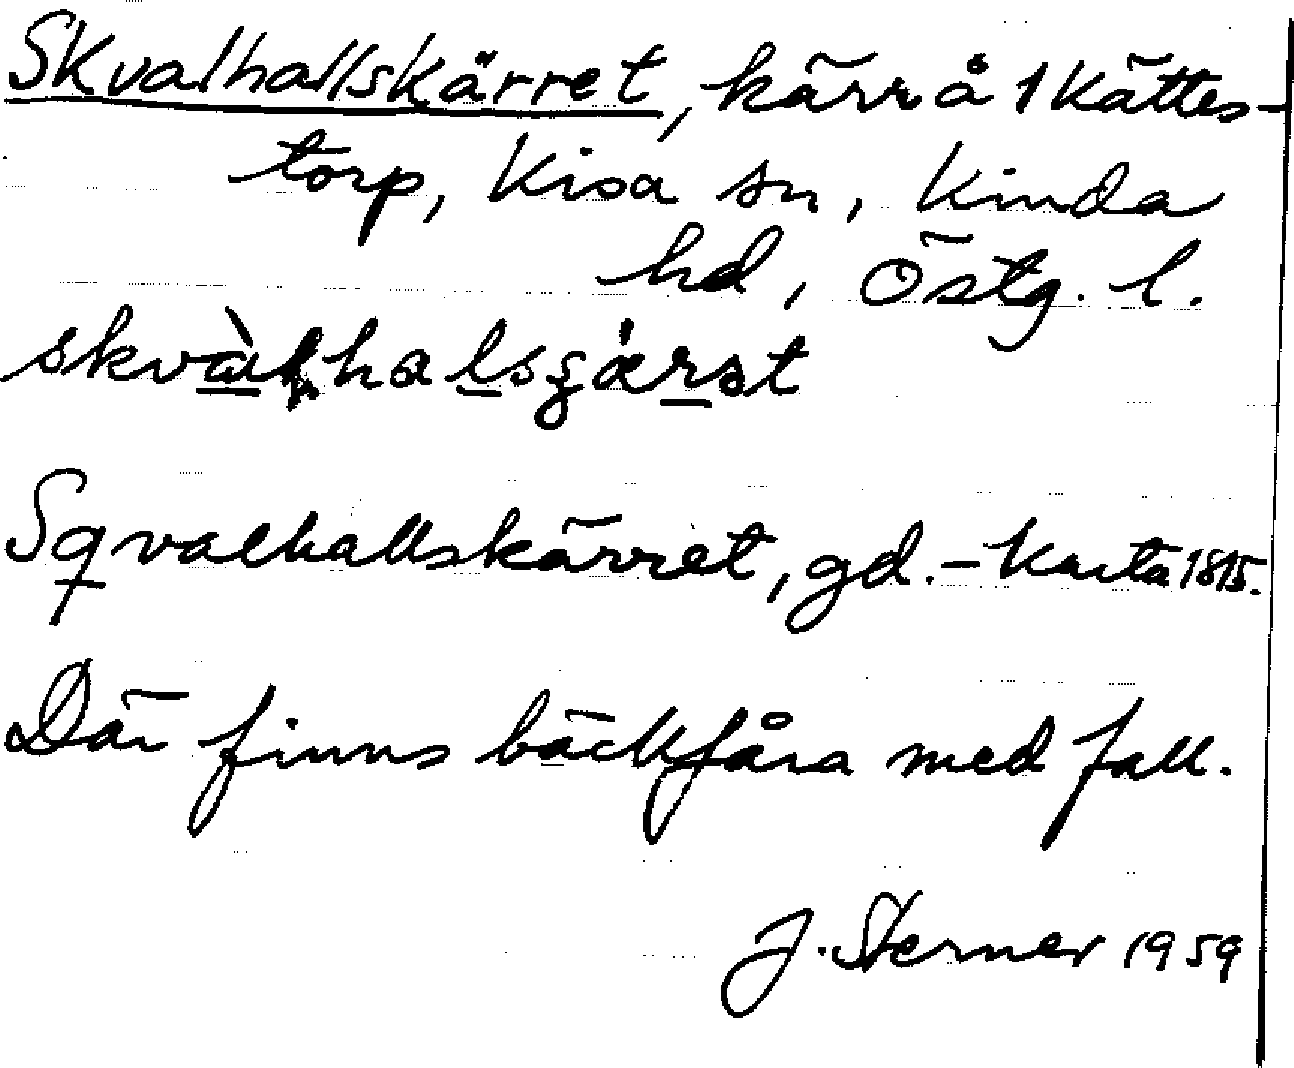 Skvalhallskärret, kärr å 1 Kättes-
torp, Kisa sn, Kinda
hd, Östg. l.
Sqvalhallskärret, gd. - Karta 1815.
Där finns bäckfåra med fall.
J. Sterner 1959